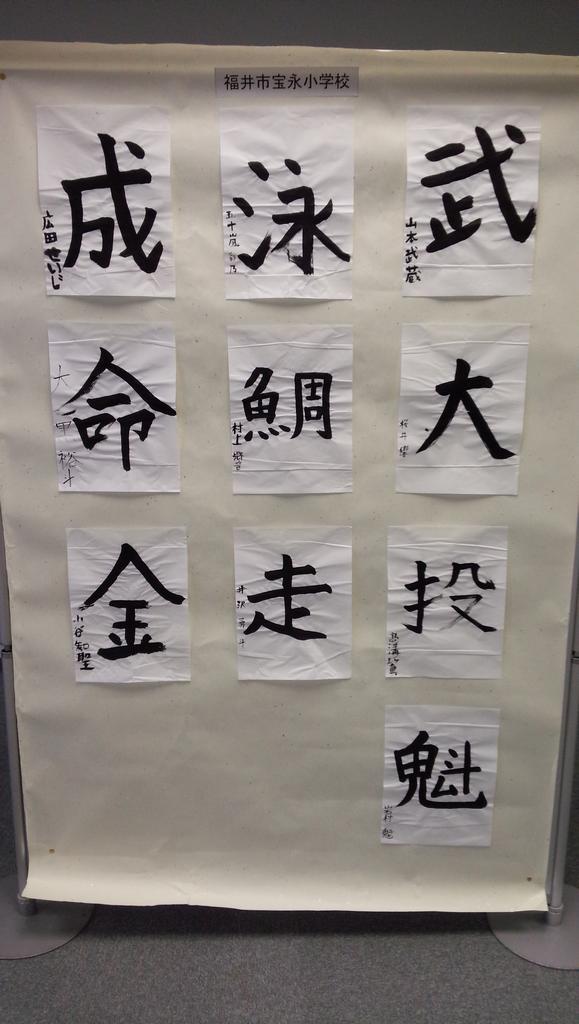 福井市宝永小学校
武
山本武蔵
泳
五十嵐
成
広田せいじ
大
桜井
鯛
村上
命
大甲裕斗
投
走
井沢
斗
金
小谷知聖
魁
岩村魁